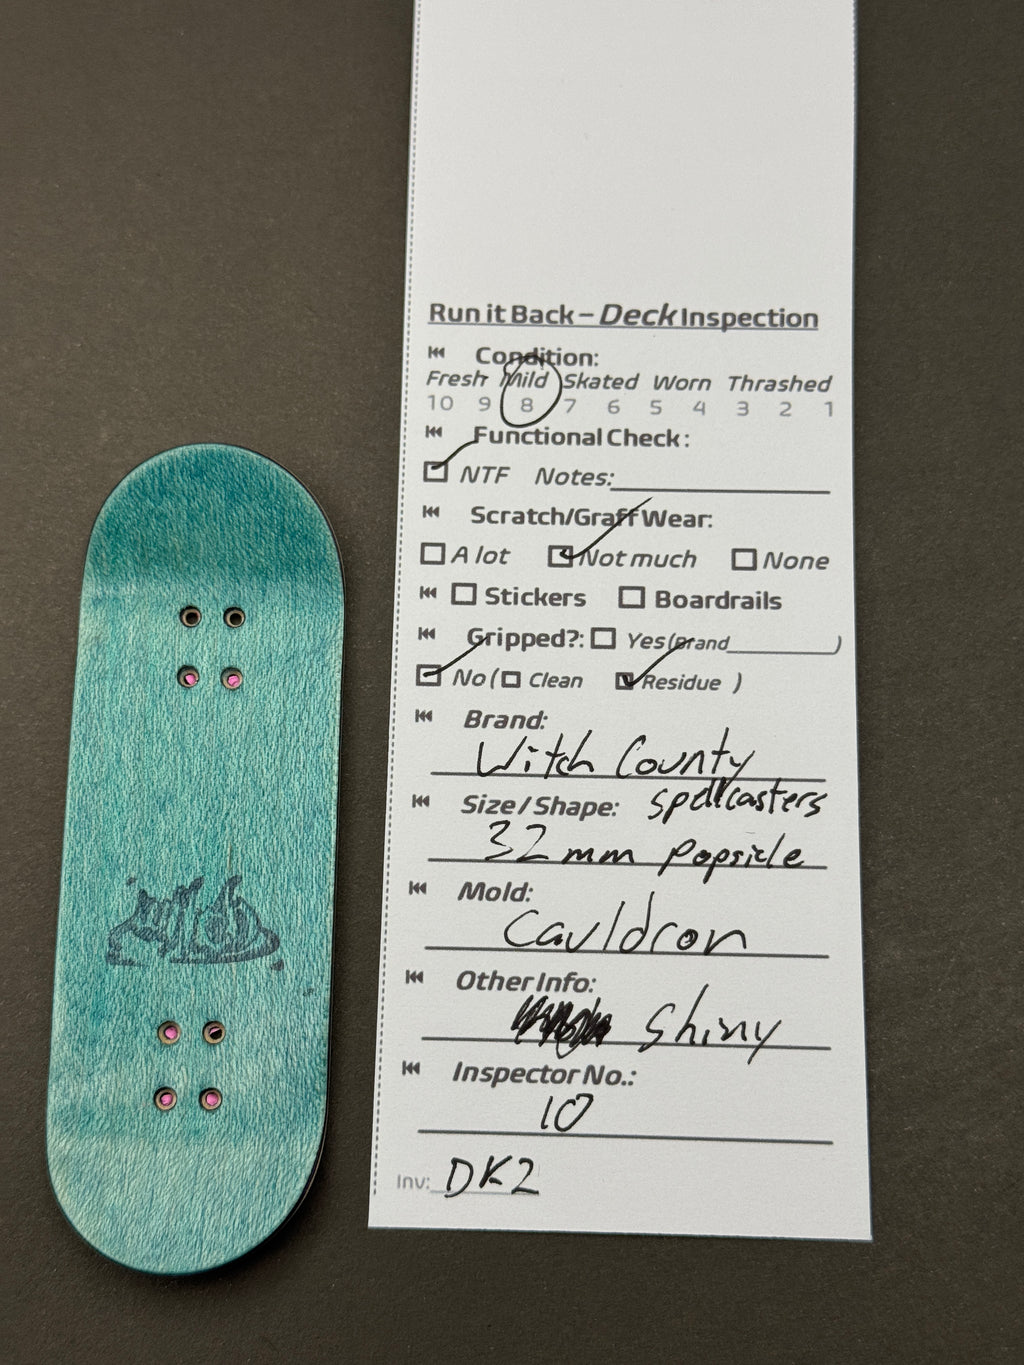 Run it Back – Deck Inspection
Condition:
Fresh Mild Skated Worn Thrashed
10 9 8 7 6 5 4 3 2 1
Functional Check:
NTF Notes:
Scratch/Graff Wear:
A lot Not much None
Stickers Boardrails
Gripped?: Yes (Brand )
No ( Clean Residue )
Brand:
Witch County
Size / Shape: spellcasters
32 mm Popsicle
Mold:
Cauldron
Other Info:
Shiny
Inspector No.:
10
Inv: DK2